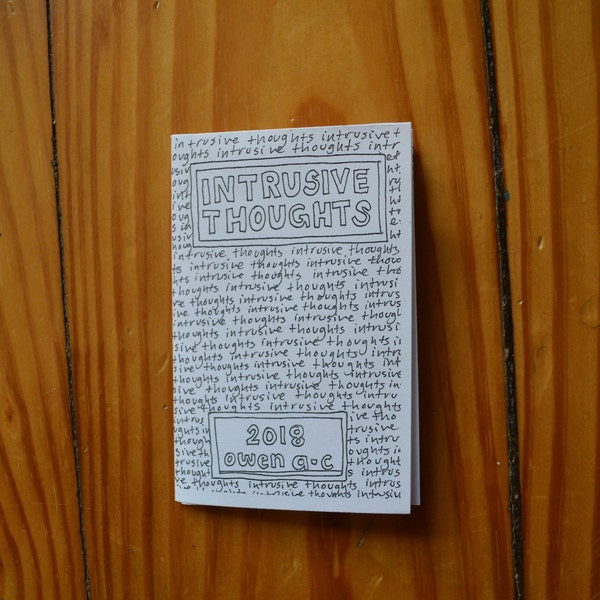 intrusive thoughts intrusive t
oughts intrusive thoughts intr
INTRUSIVE
THOUGHTS
intrusive thoughts intrusive thoughts
ts intrusive thoughts intrusive
thoughts intrusive thoughts intrusive
thoughts intrusive thoughts intrusi
ve thoughts intrusive thoughts intrus
ive thoughts intrusive thoughts
intrusive thoughts intrusive thoughts
thoughts intrusive thoughts intrusi
thoughts intrusive thoughts
thoughts intrusive thoughts intr
thoughts intrusive thoughts int
thoughts intrusive thoughts intrusive
sive thoughts intrusive thoughts in
thoughts intrusive thoughts intru
intrusive thoughts intrusive thoughts
2018
owen a·c
thoughts intrusive thoughts intrusive
ve thoughts intrusive thoughts intrusiv